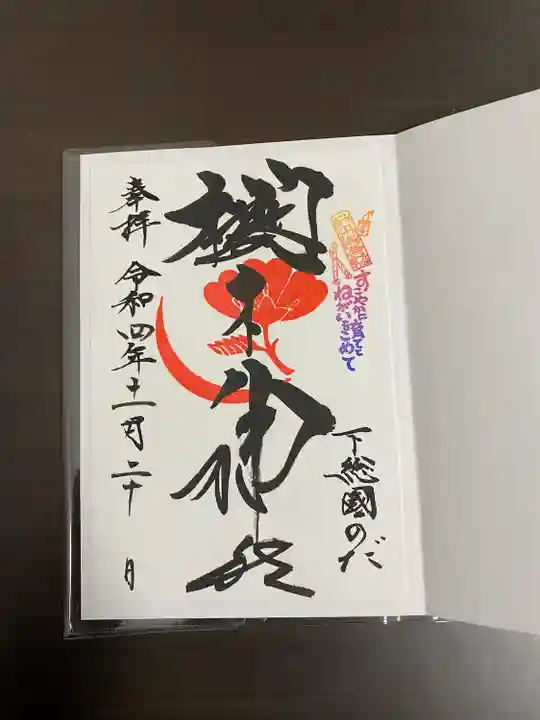 すこやかに育てと
ねがいをこめて
下総國のだ
櫻木
奉拝 令和四年十一月二十 日